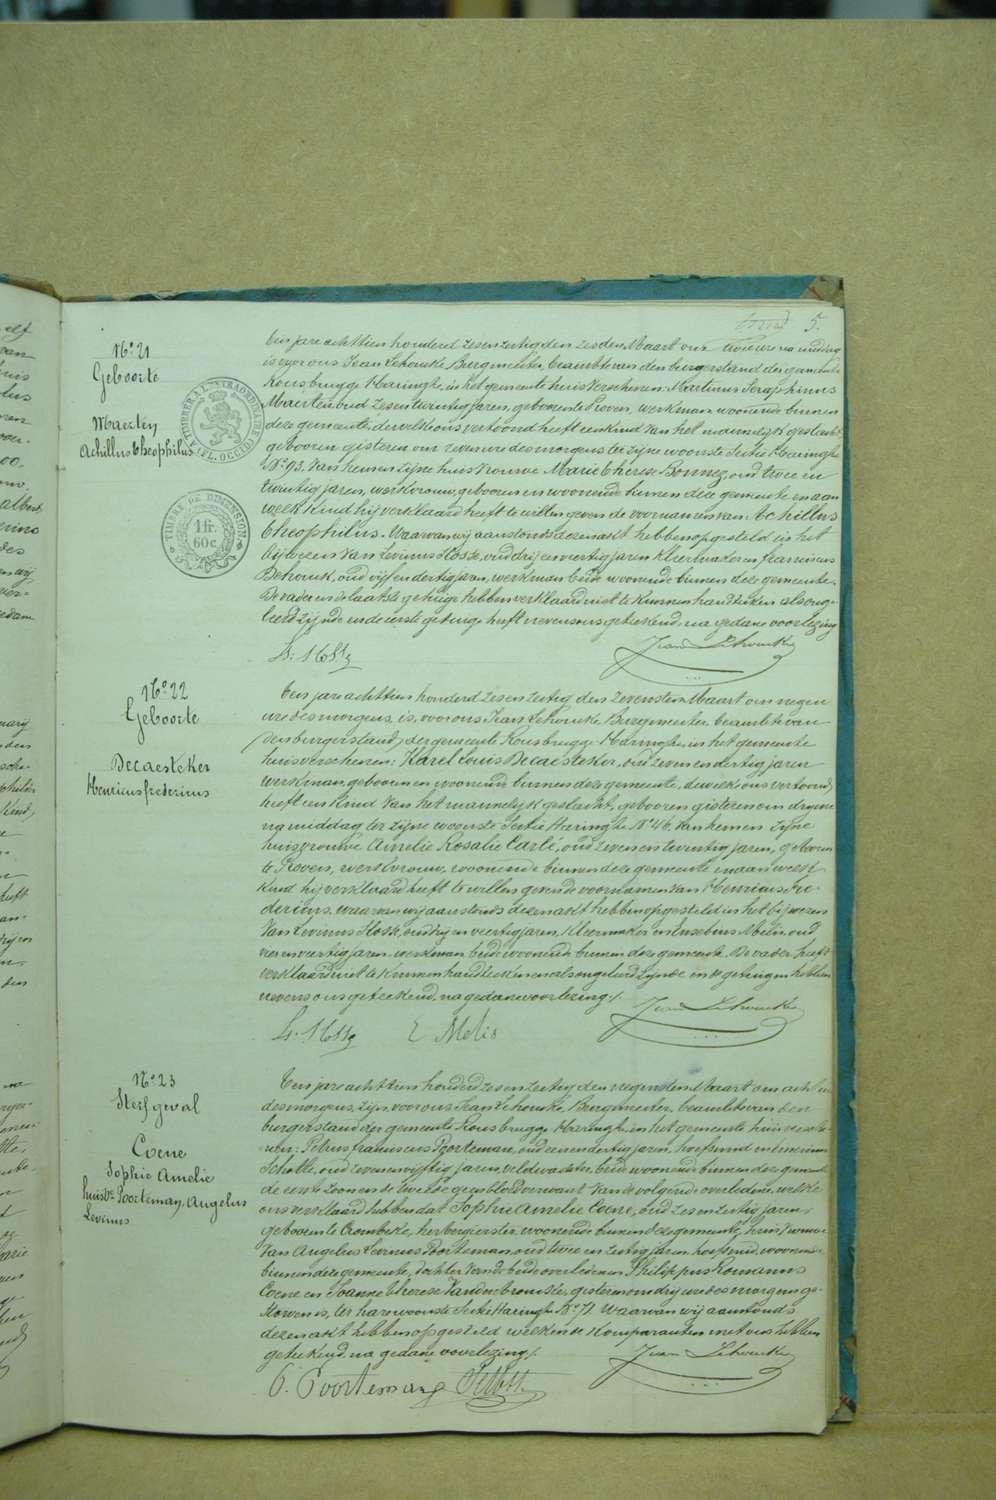 5.
No 21
Geboorte
Maerten
Achillus Theophilus
TIMBRE DE DIMENSION
1 fr.
60 c.
Ten jare achttien honderd zesenzestig den zesden Maart om twee ure na middag
is, voor ons Jean Lehoucke Burgmeester, beambte van den burgerstand der gemeente
Rousbrugge Haringhe, in het gemeente huis verschenen: Martinus Seraphinus
Maerten oud zesentwintig jaren, geboren te Proven, werkman woonende binnen
deze gemeente, dewelke ons vertoond heeft een kind van het mannelijk geslacht
geboren gisteren om zeven ure des morgens ter zijne woonste Sectie Haringhe
No 93. van hem en zijne huisvrouwe Marie Therese Bonnez, oud twee en
twintig jaren, werkvrouw, geboren en woonende binnen deze gemeente en aan
welk kind hij verklaard heeft te willen geven de voornamen van Achillus
Theophilus. Waarvan wij aanstonds dezen akt hebben opgesteld in het
bijwezen van Levinus Hoste, oud drij en veertig jaren kleermaker en franciscus
Dehouck, oud vijf en dertig jaren, werkman beide woonende binnen deze gemeente.
De vader en de laatste getuige hebben verklaard niet te kunnen handteeken als onge-
leerd zijnde en de eerste getuige heeft nevens ons geteekend, na gedane voorlezing
L. Hoste
Jean Lehoucke
No 22
Geboorte
Decaesteker
Henricus frederius
Ten jare achttien honderd zesenzestig den zevensten Maart om negen
ure des morgens is, voor ons Jean Lehoucke, Burgmeester, beambte van
den burgerstand, der gemeente Rousbrugge Haringhe, in het gemeente
huis verschenen: Karel Louis Decaesteker, oud zevenendertig jaren
werkman, geboren en woonende binnen deze gemeente, dewelke ons vertoond
heeft een kind van het mannelijk geslacht, geboren gisteren om drij ure
na middag ter zijne woonste Sectie Haringhe No 46. van hem en zijne
huisvrouwe Amelie Rosalie Carle, oud zevenentwintig jaren, geboren
te Proven, werkvrouw, woonende binnen deze gemeente en aan welk
kind hij verklaard heeft te willen geven de voornamen van Henricus fre-
derius, waarvan wij aanstonds dezen akt hebben opgesteld in het bijwezen
van Levinus Hoste, oud drij en veertig jaren, kleermaker en Eusebius Melis, oud
vier en veertig jaren, werkman beide woonende binnen deze gemeente. De vader heeft
verklaard niet te kunnen handteeken als ongeleerd zijnde en de getuigen hebben
nevens ons geteekend, na gedane voorlezing /.
L. Hoste E Melis
Jean Lehoucke
No 23
Sterfgeval
Coene
Sophie Amelie
huisve Poorteman, Angelus
Levinus
Ten jare achttien honderd zesenzestig den negensten Maart om acht ure
des morgens, zijn, voor ons Jean Lehoucke, Burgmeester, beambte van den
burgerstand der gemeente Rousbrugge Haringhe, in het gemeente huis versche-
nen: Petrus franciscus Poorteman, oud eenendertig jaren,
oud zevenenvijftig jaren, veldwachter, beide woonende binnen deze gemeente
de eerste zoon en de tweede geenbloedverwant van de volgende overledene, welke
ons verklaard hebben dat Sophie Amelie Coene, oud zesenzestig jaren
geboren te Crombeke, herbergierster, woonende binnen deze gemeente, huisvrouwe
van Angelus Levinus Poorteman, oud twee en zestig jaren,
binnen deze gemeente, dochter van de beide overledenen Philippus Romanus
Coene en Joanne Therese Vandenbroucke, gisteren om drij ure des morgens ge-
storven is, ter hare woonste Sectie Haringhe No 71. Waarvan wij aanstonds
dezen akt hebben opgesteld welken de komparanten met ons hebben
geteekend, na gedane voorlezing /.
P. Poorteman
Jean Lehoucke